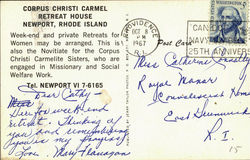 CORPUS CHRISTI CARMEL
RETREAT HOUSE
NEWPORT, RHODE ISLAND
Week-end and private Retreats for
Women may be arranged. This is
also the Novitiate for the Corpus
Christi Carmelite Sisters, who are
engaged in Missionary and Social
Welfare Work.
Tel. NEWPORT VI 7-6165
Post Card
PROVIDENCE
OCT 8
PM
1967
R.I.
NAVY
25TH ANNIVERS
Miss Catherine
Royal Manor
Convalescent Home
East Greenwich
R. I.
15
Dear Cathy -
Here for weekend
retreat. Thinking of
you and remembering
you in my prayers
Love, Mary Flanagan